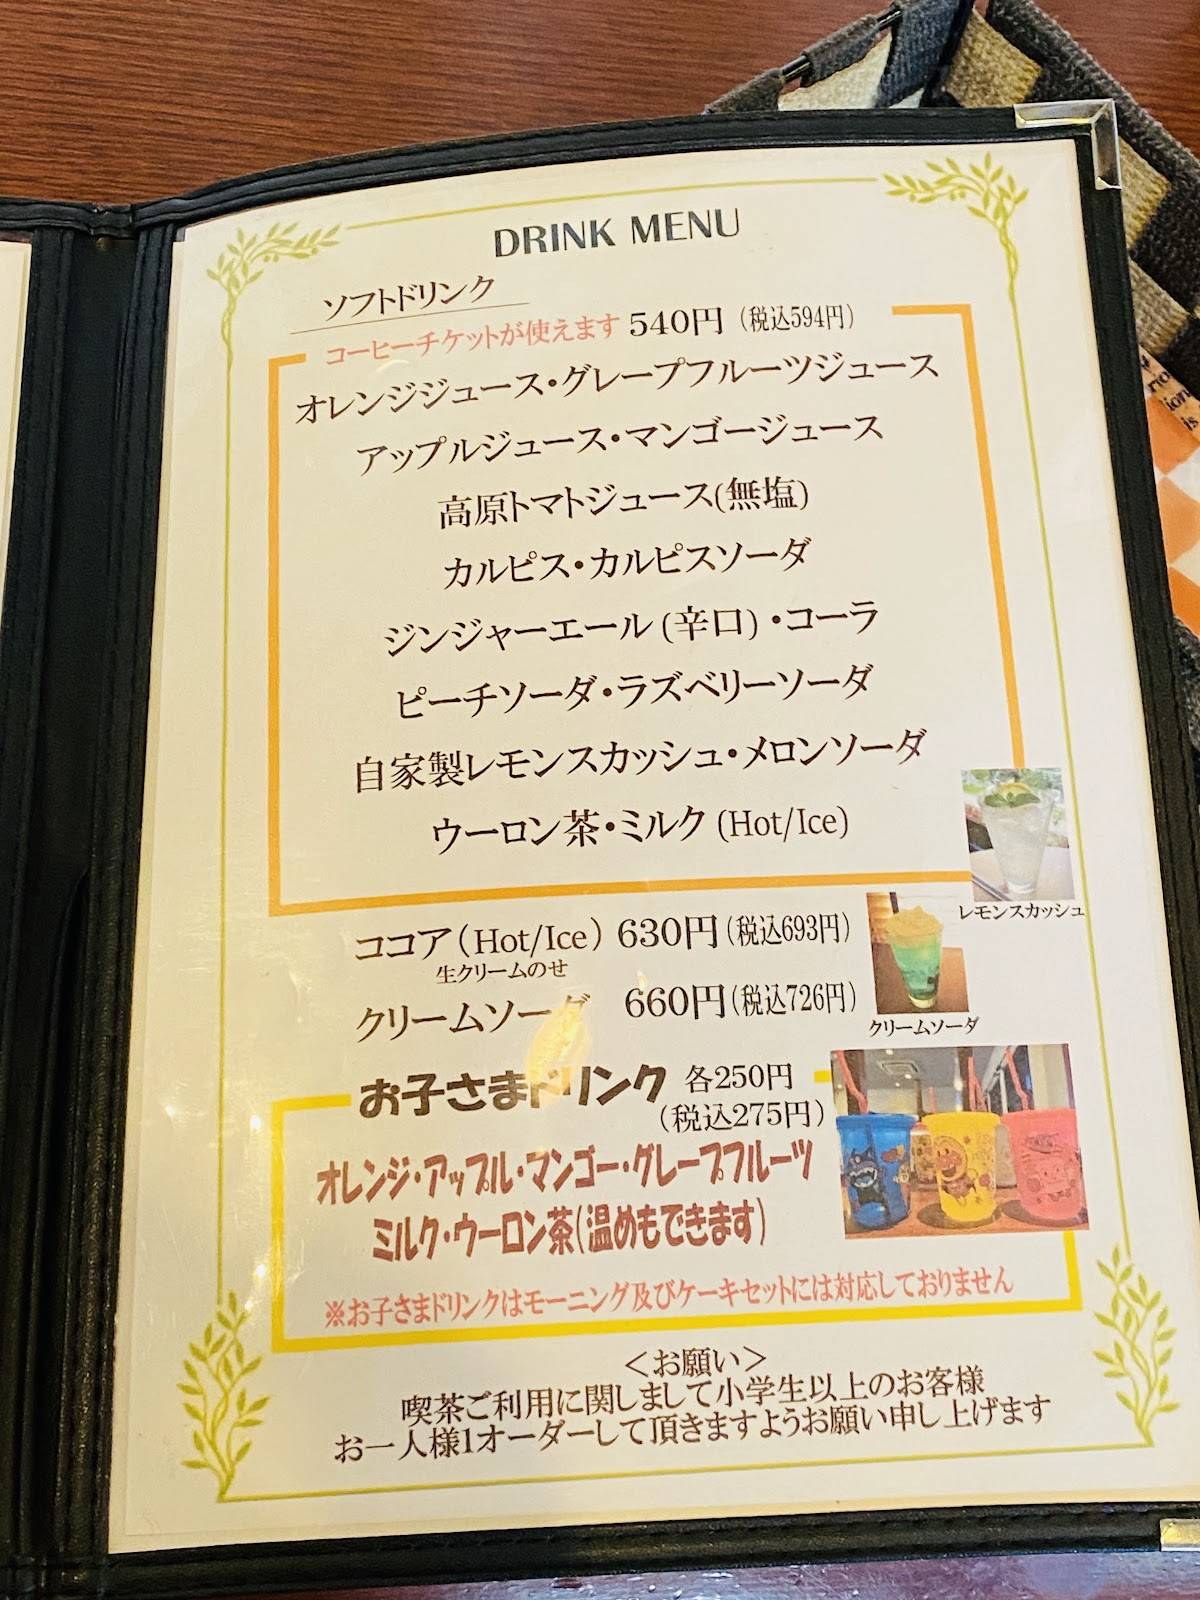 DRINK MENU
ソフトドリンク
コーヒーチケットが使えます 540円 (税込594円)
オレンジジュース・グレープフルーツジュース
アップルジュース・マンゴージュース
高原トマトジュース(無塩)
カルピス・カルピスソーダ
ジンジャーエール (辛口) ・コーラ
ピーチソーダ・ラズベリーソーダ
自家製レモンスカッシュ・メロンソーダ
ウーロン茶・ミルク (Hot/Ice)
レモンスカッシュ
ココア (Hot/Ice) 630円 (税込693円)
生クリームのせ
クリームソーダ 660円 (税込726円)
クリームソーダ
お子さまドリンク 各250円
(税込275円)
オレンジ・アップル・マンゴー・グレープフルーツ
ミルク・ウーロン茶(温めもできます)
※お子さまドリンクはモーニング及びケーキセットには対応しておりません
＜お願い＞
喫茶ご利用に関しまして小学生以上のお客様
お一人様1オーダーして頂きますようお願い申し上げます